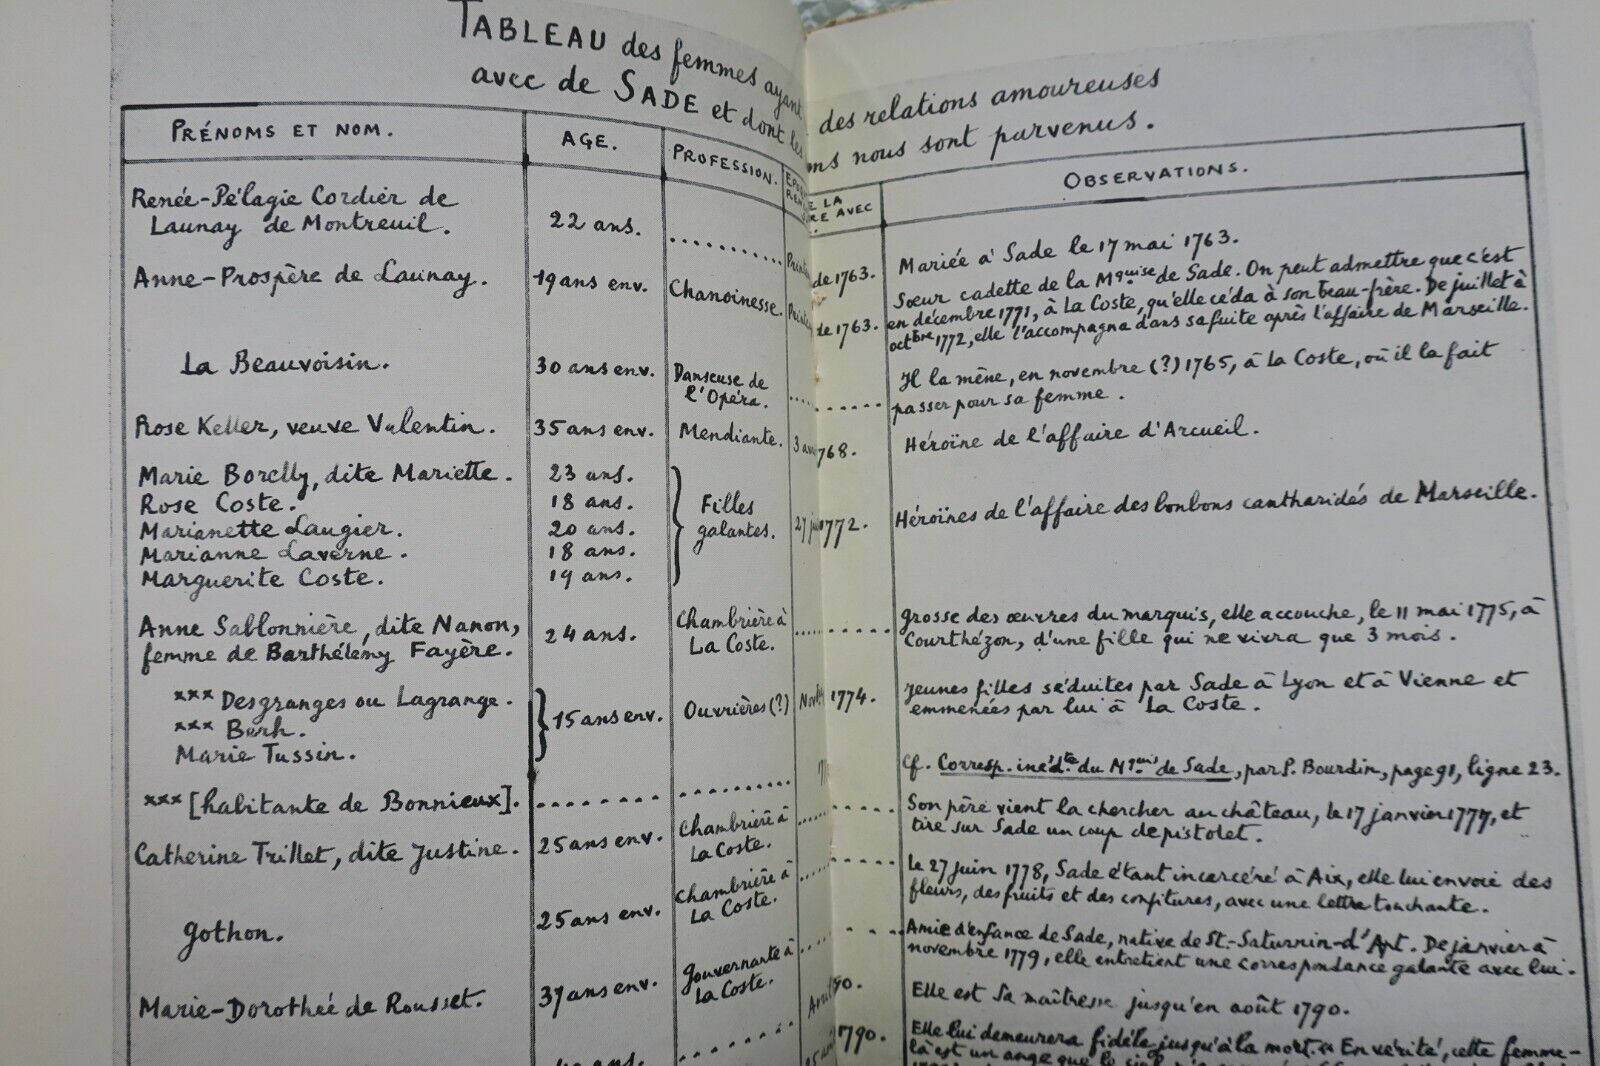 TABLEAU des femmes ayant des relations amoureuses
avec de SADE et dont les nous sont parvenus.
PRÉNOMS ET NOM. AGE. PROFESSION. LA AVEC OBSERVATIONS.
Renée-Pélagie Cordier de
Launay de Montreuil. 22 ans. .......... de 1763. Mariée à Sade le 17 mai 1763.
Anne-Prospère de Launay. 19 ans env. Chanoinesse. de 1763. Sœur cadette de la Mquise de Sade. On peut admettre que c'est
en décembre 1771, à La Coste, qu'elle céda à son beau-frère. De juillet à
octbre 1772, elle l'accompagna dans sa fuite après l'affaire de Marseille.
La Beauvoisin. 30 ans env. Danseuse de
l'Opéra. .......... Il la mène, en novembre (?) 1765, à La Coste, où il la fait
passer pour sa femme.
Rose Keller, veuve Valentin. 35 ans env. Mendiante. 3 768. Héroïne de l'affaire d'Arcueil.
Marie Borelly, dite Mariette. 23 ans.
Rose Coste. 18 ans. Filles
Marianette Laugier. 20 ans. galantes. 27 1772. Héroïnes de l'affaire des bonbons cantharidés de Marseille.
Marianne Laverne. 18 ans.
Marguerite Coste. 19 ans.
Anne Sablonnière, dite Nanon,
femme de Barthélemy Fayère. 24 ans. Chambrière à
La Coste. .......... Grosse des œuvres du marquis, elle accouche, le 11 mai 1775, à
Courthézon, d'une fille qui ne vivra que 3 mois.
*** Desgranges ou Lagrange.
*** Berh. 15 ans env. Ouvrières (?) 1774. Jeunes filles séduites par Sade à Lyon et à Vienne et
emmenées par lui à La Coste.
Marie Tussin.
*** [habitante de Bonnieux]. ........ .......... cf. Corresp. inédte du Mquis de Sade, par P. Bourdin, page 91, ligne 23.
Catherine Trillet, dite Justine. 25 ans env. Chambrière à
La Coste. .......... Son père vient la chercher au château, le 17 janvier 1777, et
tire sur Sade un coup de pistolet.
Gothon. 25 ans env. Chambrière à
La Coste. .......... Le 27 juin 1778, Sade étant incarcéré à Aix, elle lui envoie des
fleurs, des fruits et des confitures, avec une lettre touchante.
Marie-Dorothée de Rousset. 37 ans env. Gouvernante à
La Coste. .......... Amie d'enfance de Sade, native de St-Saturnin-d'Apt. De janvier à
novembre 1779, elle entretient une correspondance galante avec lui.
........ 90. Elle est sa maîtresse jusqu'en août 1790.
ans. 1790. Elle lui demeurera fidèle jusqu'à la mort. « En vérité, cette femme-
là est un ange que le ciel